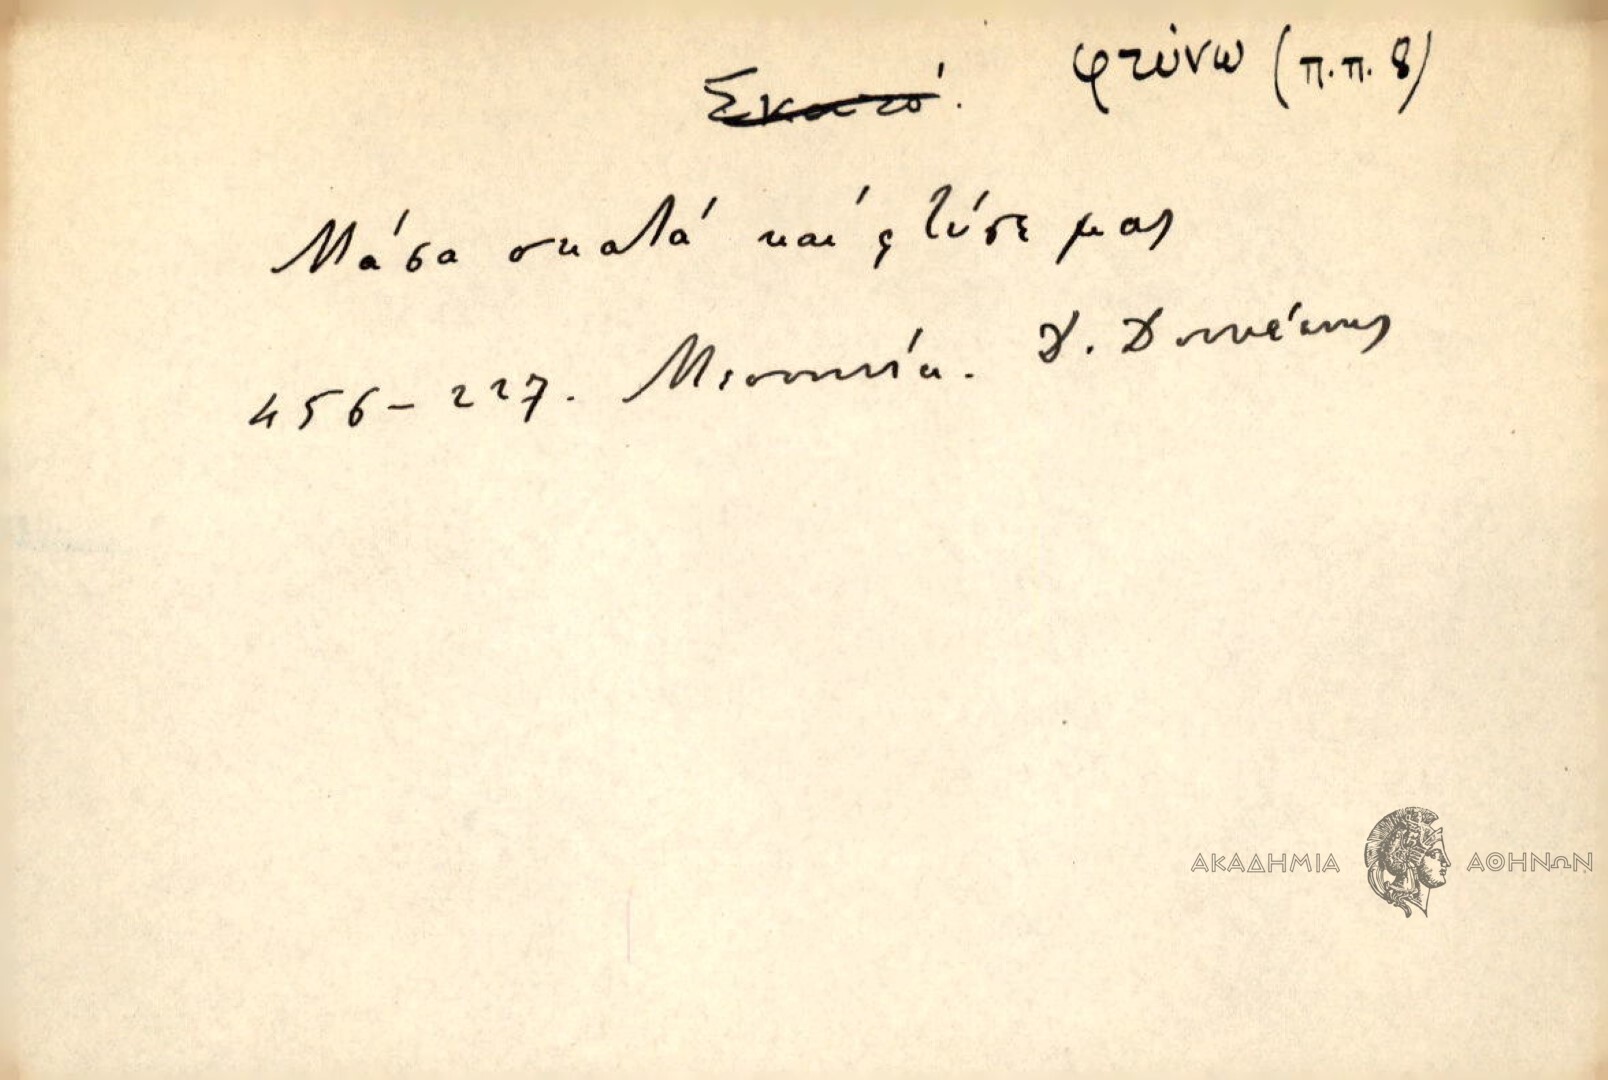 Σκατό. φτύνω (π.π. 8)
Μάσα σκατά καί φτύσε μας
456-227. Μεσσηνία. Δ.
ΑΚΑΔΗΜΙΑ ΑΘΗΝΩΝ